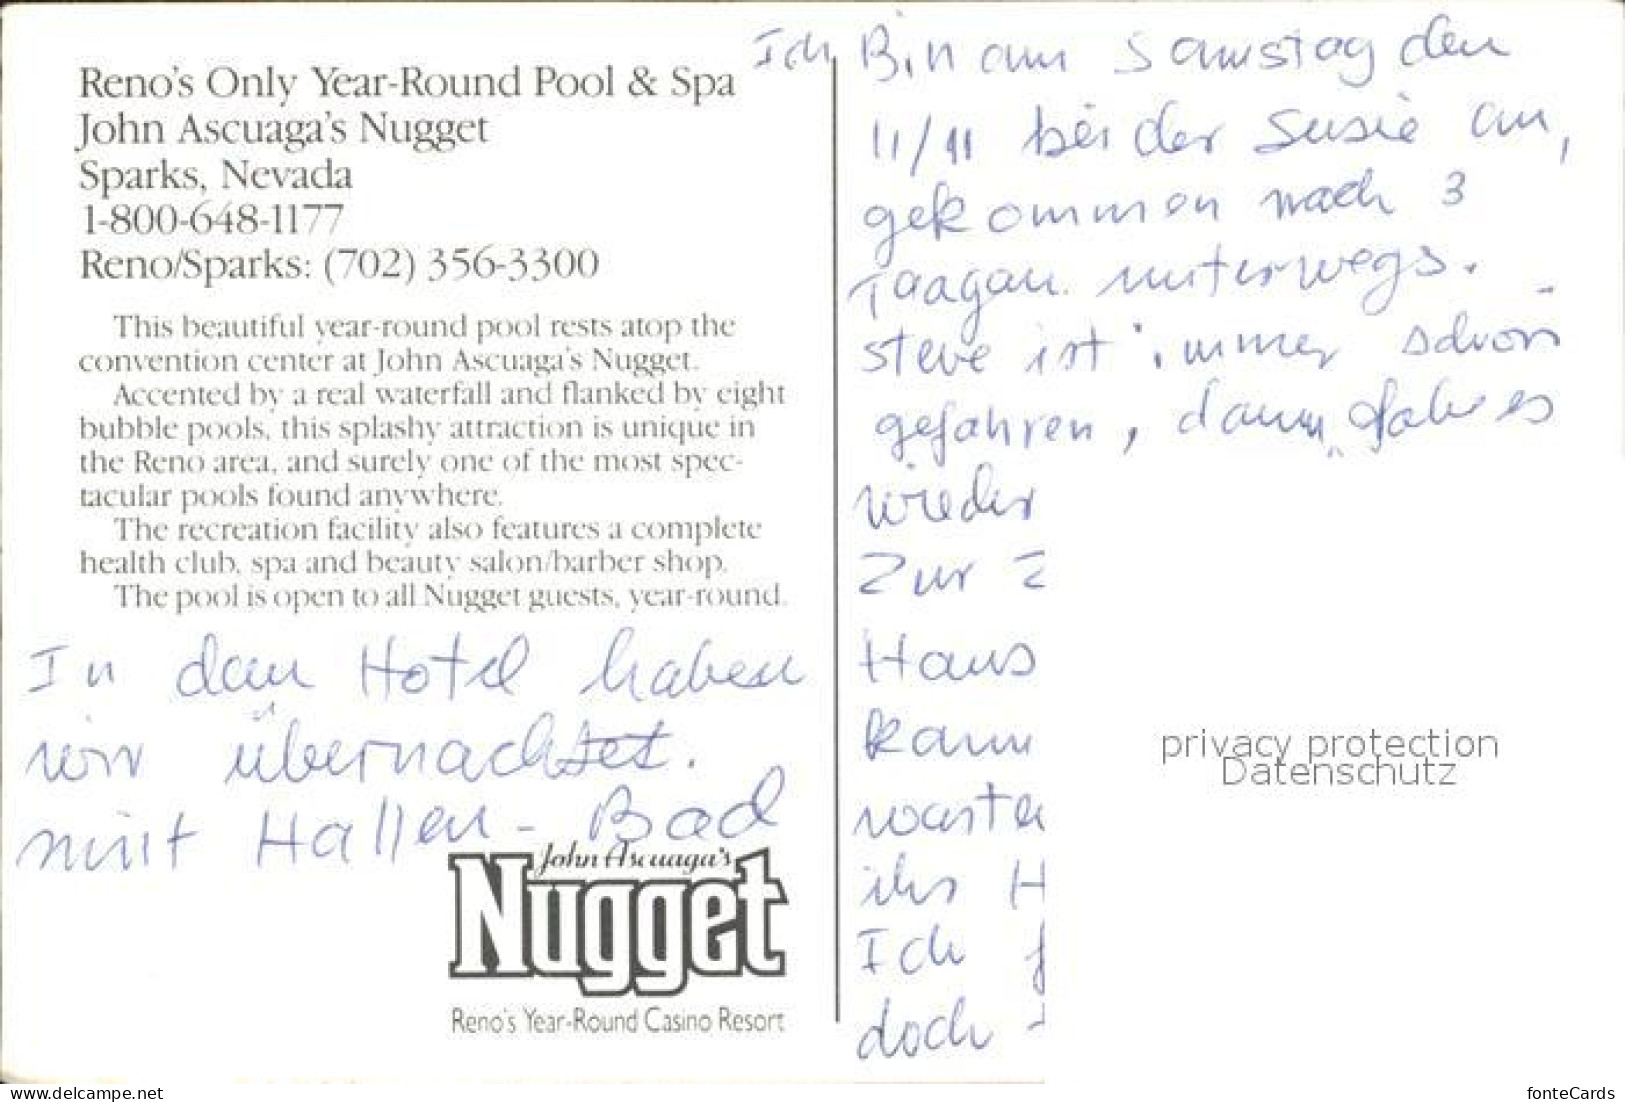 Reno's Only Year-Round Pool & Spa
John Ascuaga's Nugget
Sparks, Nevada
1-800-648-1177
Reno/Sparks: (702) 356-3300
This beautiful year-round pool rests atop the
convention center at John Ascuaga's Nugget.
Accented by a real waterfall and flanked by eight
bubble pools, this splashy attraction is unique in
the Reno area, and surely one of the most spec-
tacular pools found anywhere.
The recreation facility also features a complete
health club, spa and beauty salon/barber shop.
The pool is open to all Nugget guests, year-round.
In dem Hotel haben
wir übernachtet.
mit Hallen-Bad
John Ascuaga's
Nugget
Reno's Year-Round Casino Resort
Ich Bin am Samstag den
11/11 bei der Susie an,
gekommen nach 3
Taagen unterwegs.
Steve ist immer schon
gefahren, dann es
wieder
Zur
Haus
kann
ihr H
Ich
doch
privacy protection
Datenschutz
www.delcampe.net
fonteCards